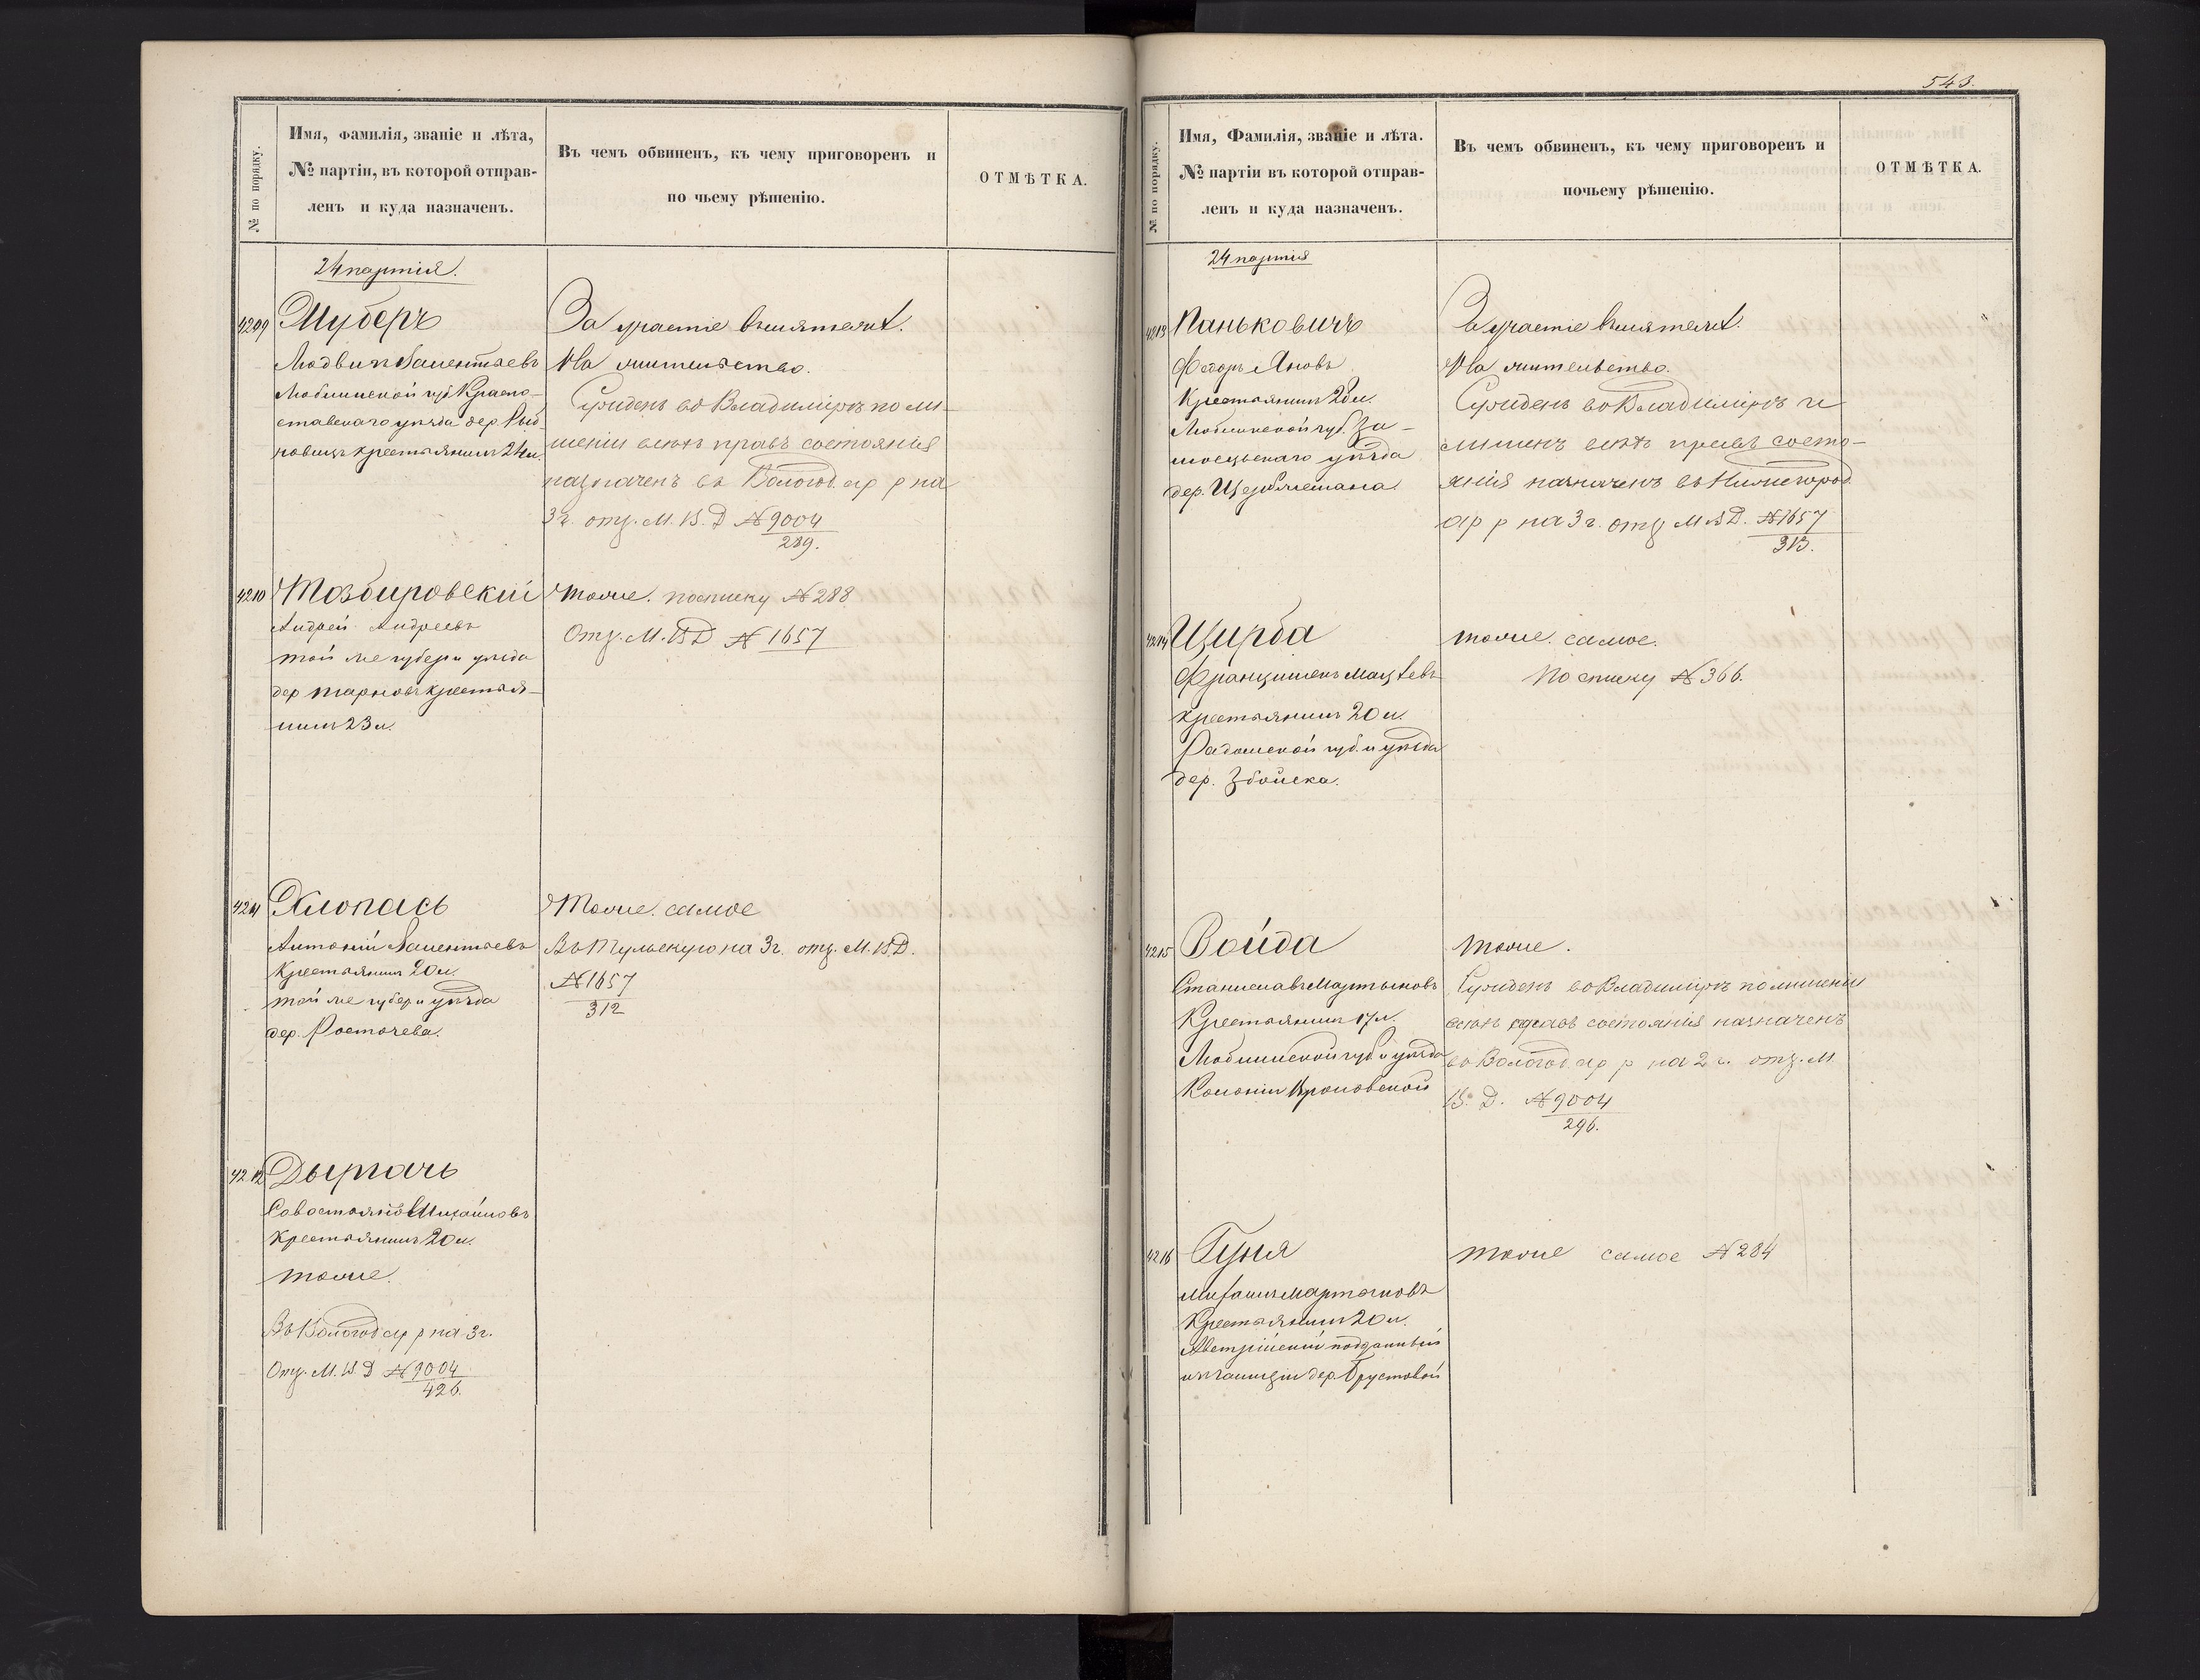 № по порядку.
Имя, фамилія, званіе и лѣта,
№ партіи, въ которой отправ-
ленъ и куда назначенъ.
Въ чемъ обвиненъ, къ чему приговоренъ и
по чьему рѣшенію.
ОТМѢТКА.
24 партія.
4209
Шуберъ
Людвигъ Валентьевъ
Люблинской губ. Красно-
ставскаго уѣзда дер.
крестьянинъ 24 л.
За участіе въ мятежѣ.
На жительство.
Сужденъ во Владимірѣ по ли-
шеніи всѣхъ правъ состоянія
назначенъ въ Вологод. ар р на
3 г. отз. М. В. Д № 9004
289.
4210
Тозбировскій
Андрей Андреевъ
той же губер и уѣзда
дер Тарновъ крестья-
нинъ 23 л.
тоже. по списку № 288
Отз. М. В Д № 1657
4211
Хлопась
Антоній Валентьевъ
Крестьянинъ 20 л.
той же губер и уѣзда
дер. Росточева.
Тоже. самое
Въ Тульскую на 3 г. отз. М. В. Д.
№ 1657
312
4212
Дыркачь
Михайловъ
Крестьянинъ 20 л.
тоже.
Въ Вологод ар р на 3 г.
Отз. М. В. Д № 9004
426.
543.
№ по порядку.
Имя, Фамилія, званіе и лѣта.
№ партіи въ которой отправ-
ленъ и куда назначенъ.
Въ чемъ обвиненъ, къ чему приговоренъ и
почьему рѣшенію.
ОТМѢТКА.
24 партія
4213
Паньковичъ
Федоръ Яновъ
Крестьянинъ 20 л.
Люблинской губ. За-
мосцьскаго уѣзда
дер.
За участіе въ мятежѣ.
На жительство.
Сужденъ во Владимірѣ и
лишенъ всѣхъ правъ состо-
янія назначенъ въ Нижегород.
ар р на 3 г. отз М В Д. № 1657
313.
4214
Щирба
Францишекъ Мацѣевъ
Крестьянинъ 20 л.
Радомской губ. и уѣзда
дер. Збойска.
тоже. самое.
По списку № 366.
4215
Войда
Станиславъ Мартыновъ
Крестьянинъ 17 л.
Люблинской губ и уѣзда
Колоніи
тоже.
Сужденъ во Владимірѣ по лишеніи
всѣхъ правъ состоянія назначенъ
въ Вологод. ар р на 2 г. отз. М.
В. Д. № 9004
296.
4216
Гуня
Михаилъ Мартыновъ
Крестьянинъ 20 л.
Австрійскій подданный
изъ Галиціи дер. Брустовой
тоже самое № 284